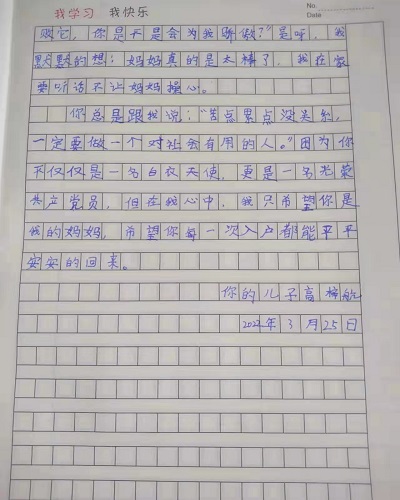 我学习 我快乐
No.
Date
你是不是会为我骄傲？”是呀，我
默默的想：妈妈真的是太棒了，我在家
要听话不让妈妈操心。
你总是跟我说：“苦点累点没关系，
一定要做一个对社会有用的人。”因为你
不仅仅是一名白衣天使，更是一名光荣
共产党员，但在我心中，我只希望你是
我的妈妈，希望你每一次入户都能平平
安安的回来。
你的儿子高梓航
2022年3月25日